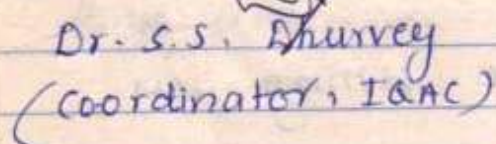 Dr. S.S. Dhurvey
(Coordinator, IQAC)